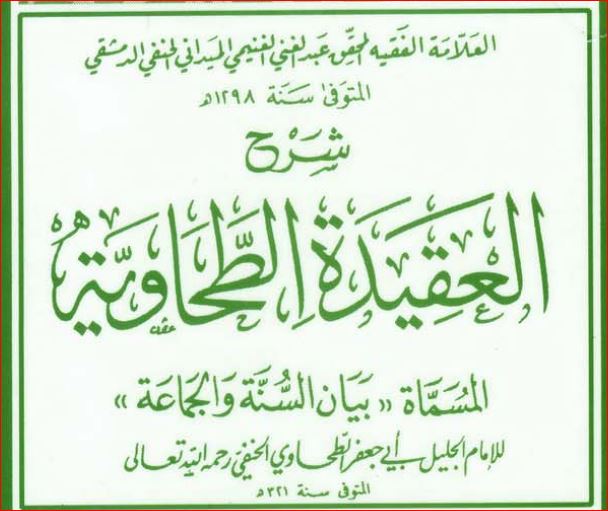 العلامة الفقيه المحقق عبد الغني الغنيمي الميداني الحنفي الدمشقي
المتوفى سنة ١٢٩٨هـ
شَرْح
العَقِيدَةِ الطَّحَاوِيَّةِ
المُسَمَّاة «بَيَان السُّنَّة وَالجَمَاعَة»
للإمام الجليل أبي جعفر الطحاوي الحنفي رحمه الله تعالى
المتوفى سنة ٣٢١هـ